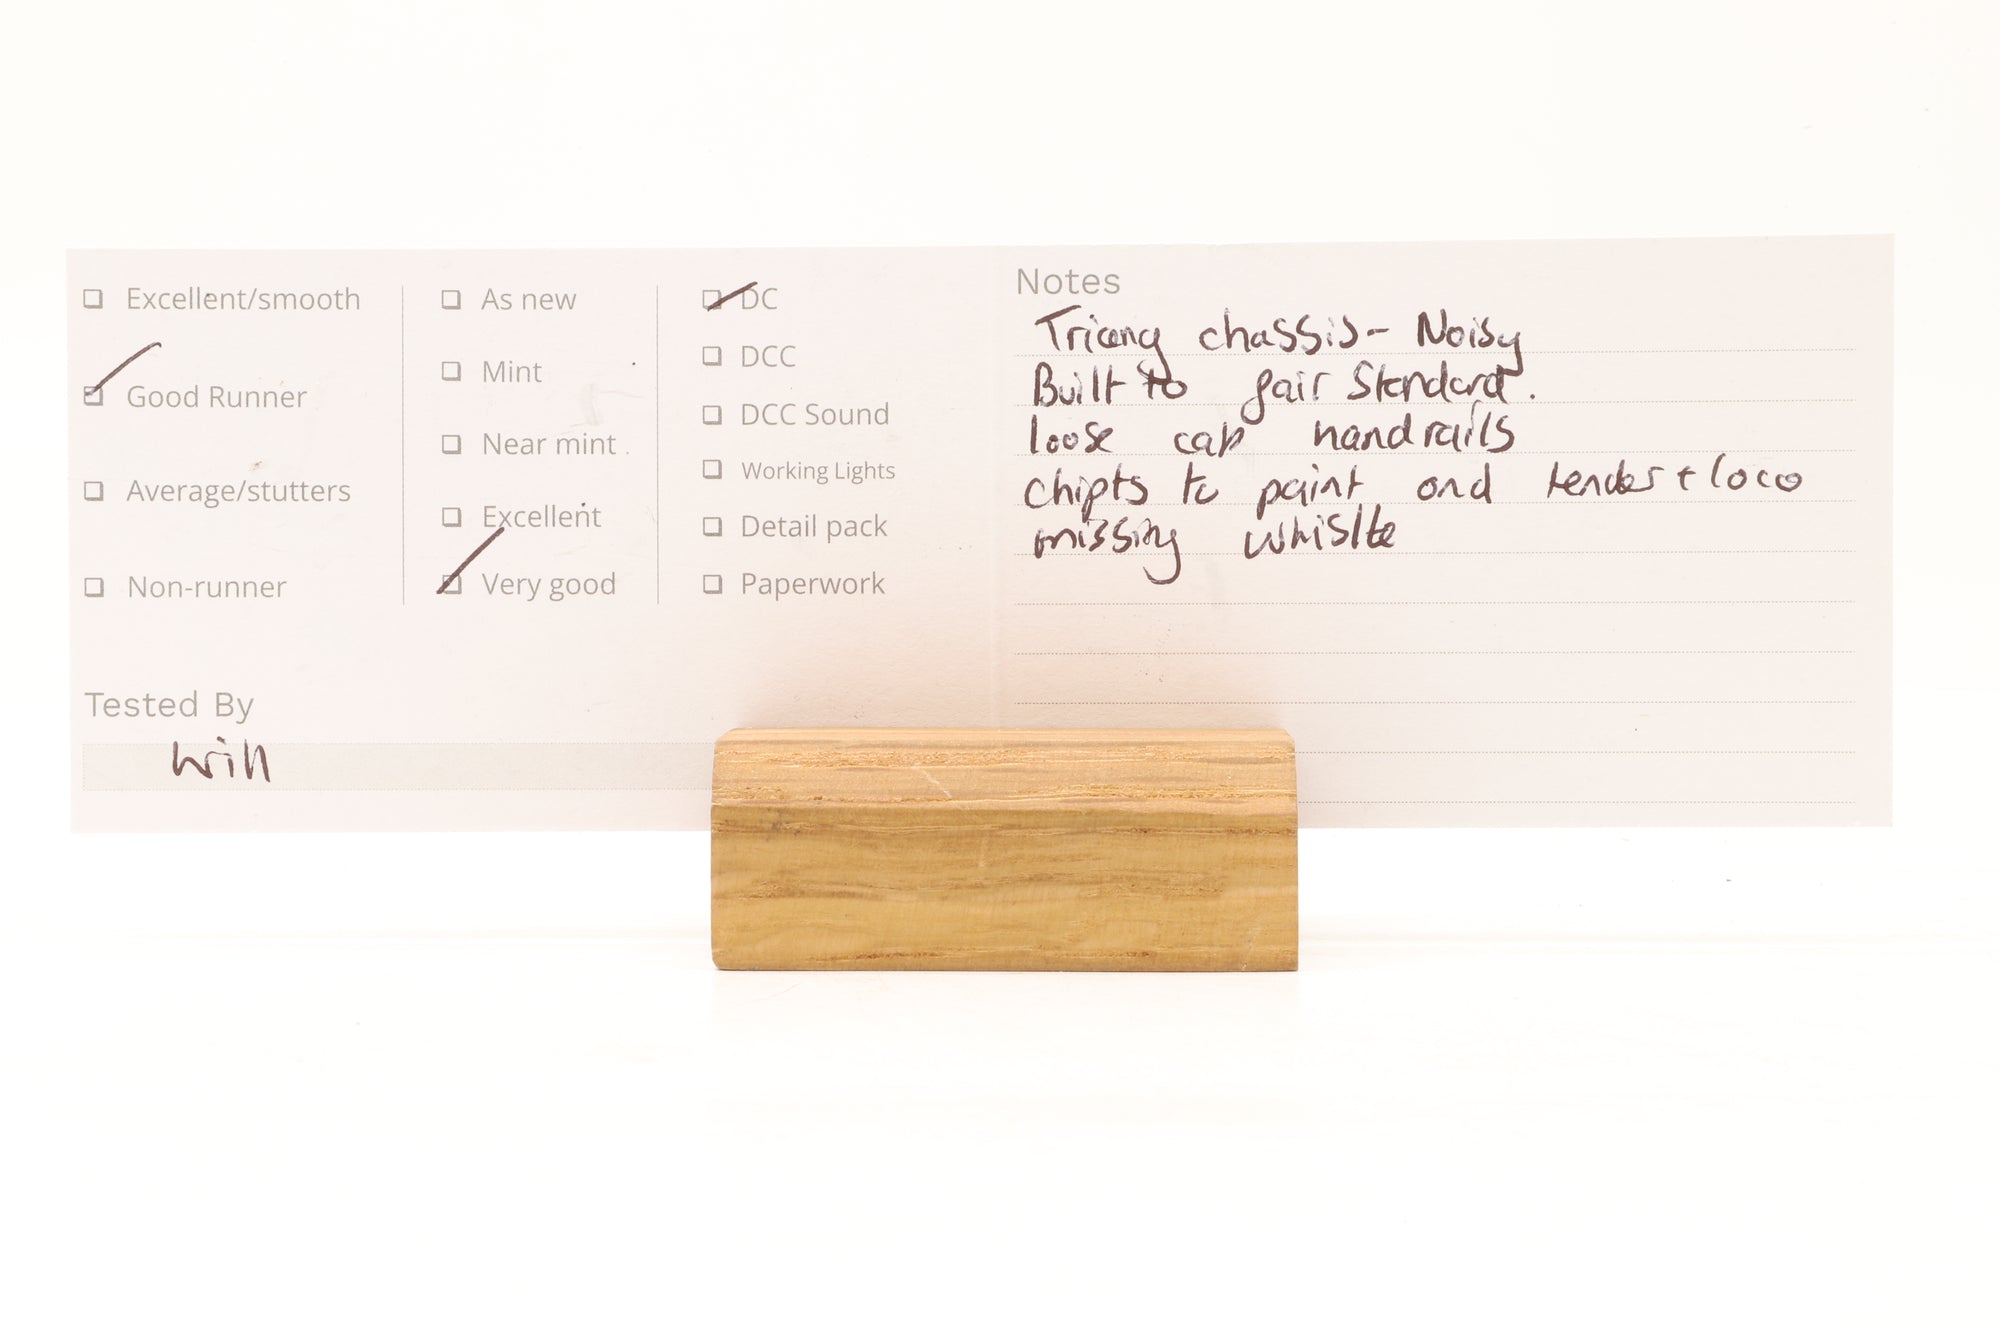 Excellent/smooth
Good Runner
Average/stutters
Non-runner
As new
Mint
Near mint
Excellent
Very good
DC
DCC
DCC Sound
Working Lights
Detail pack
Paperwork
Tested By
Will
Notes
Triang chassis - Noisy
Built to fair Standard.
loose cab handrails
chipts to paint and tender + loco
missing whislte